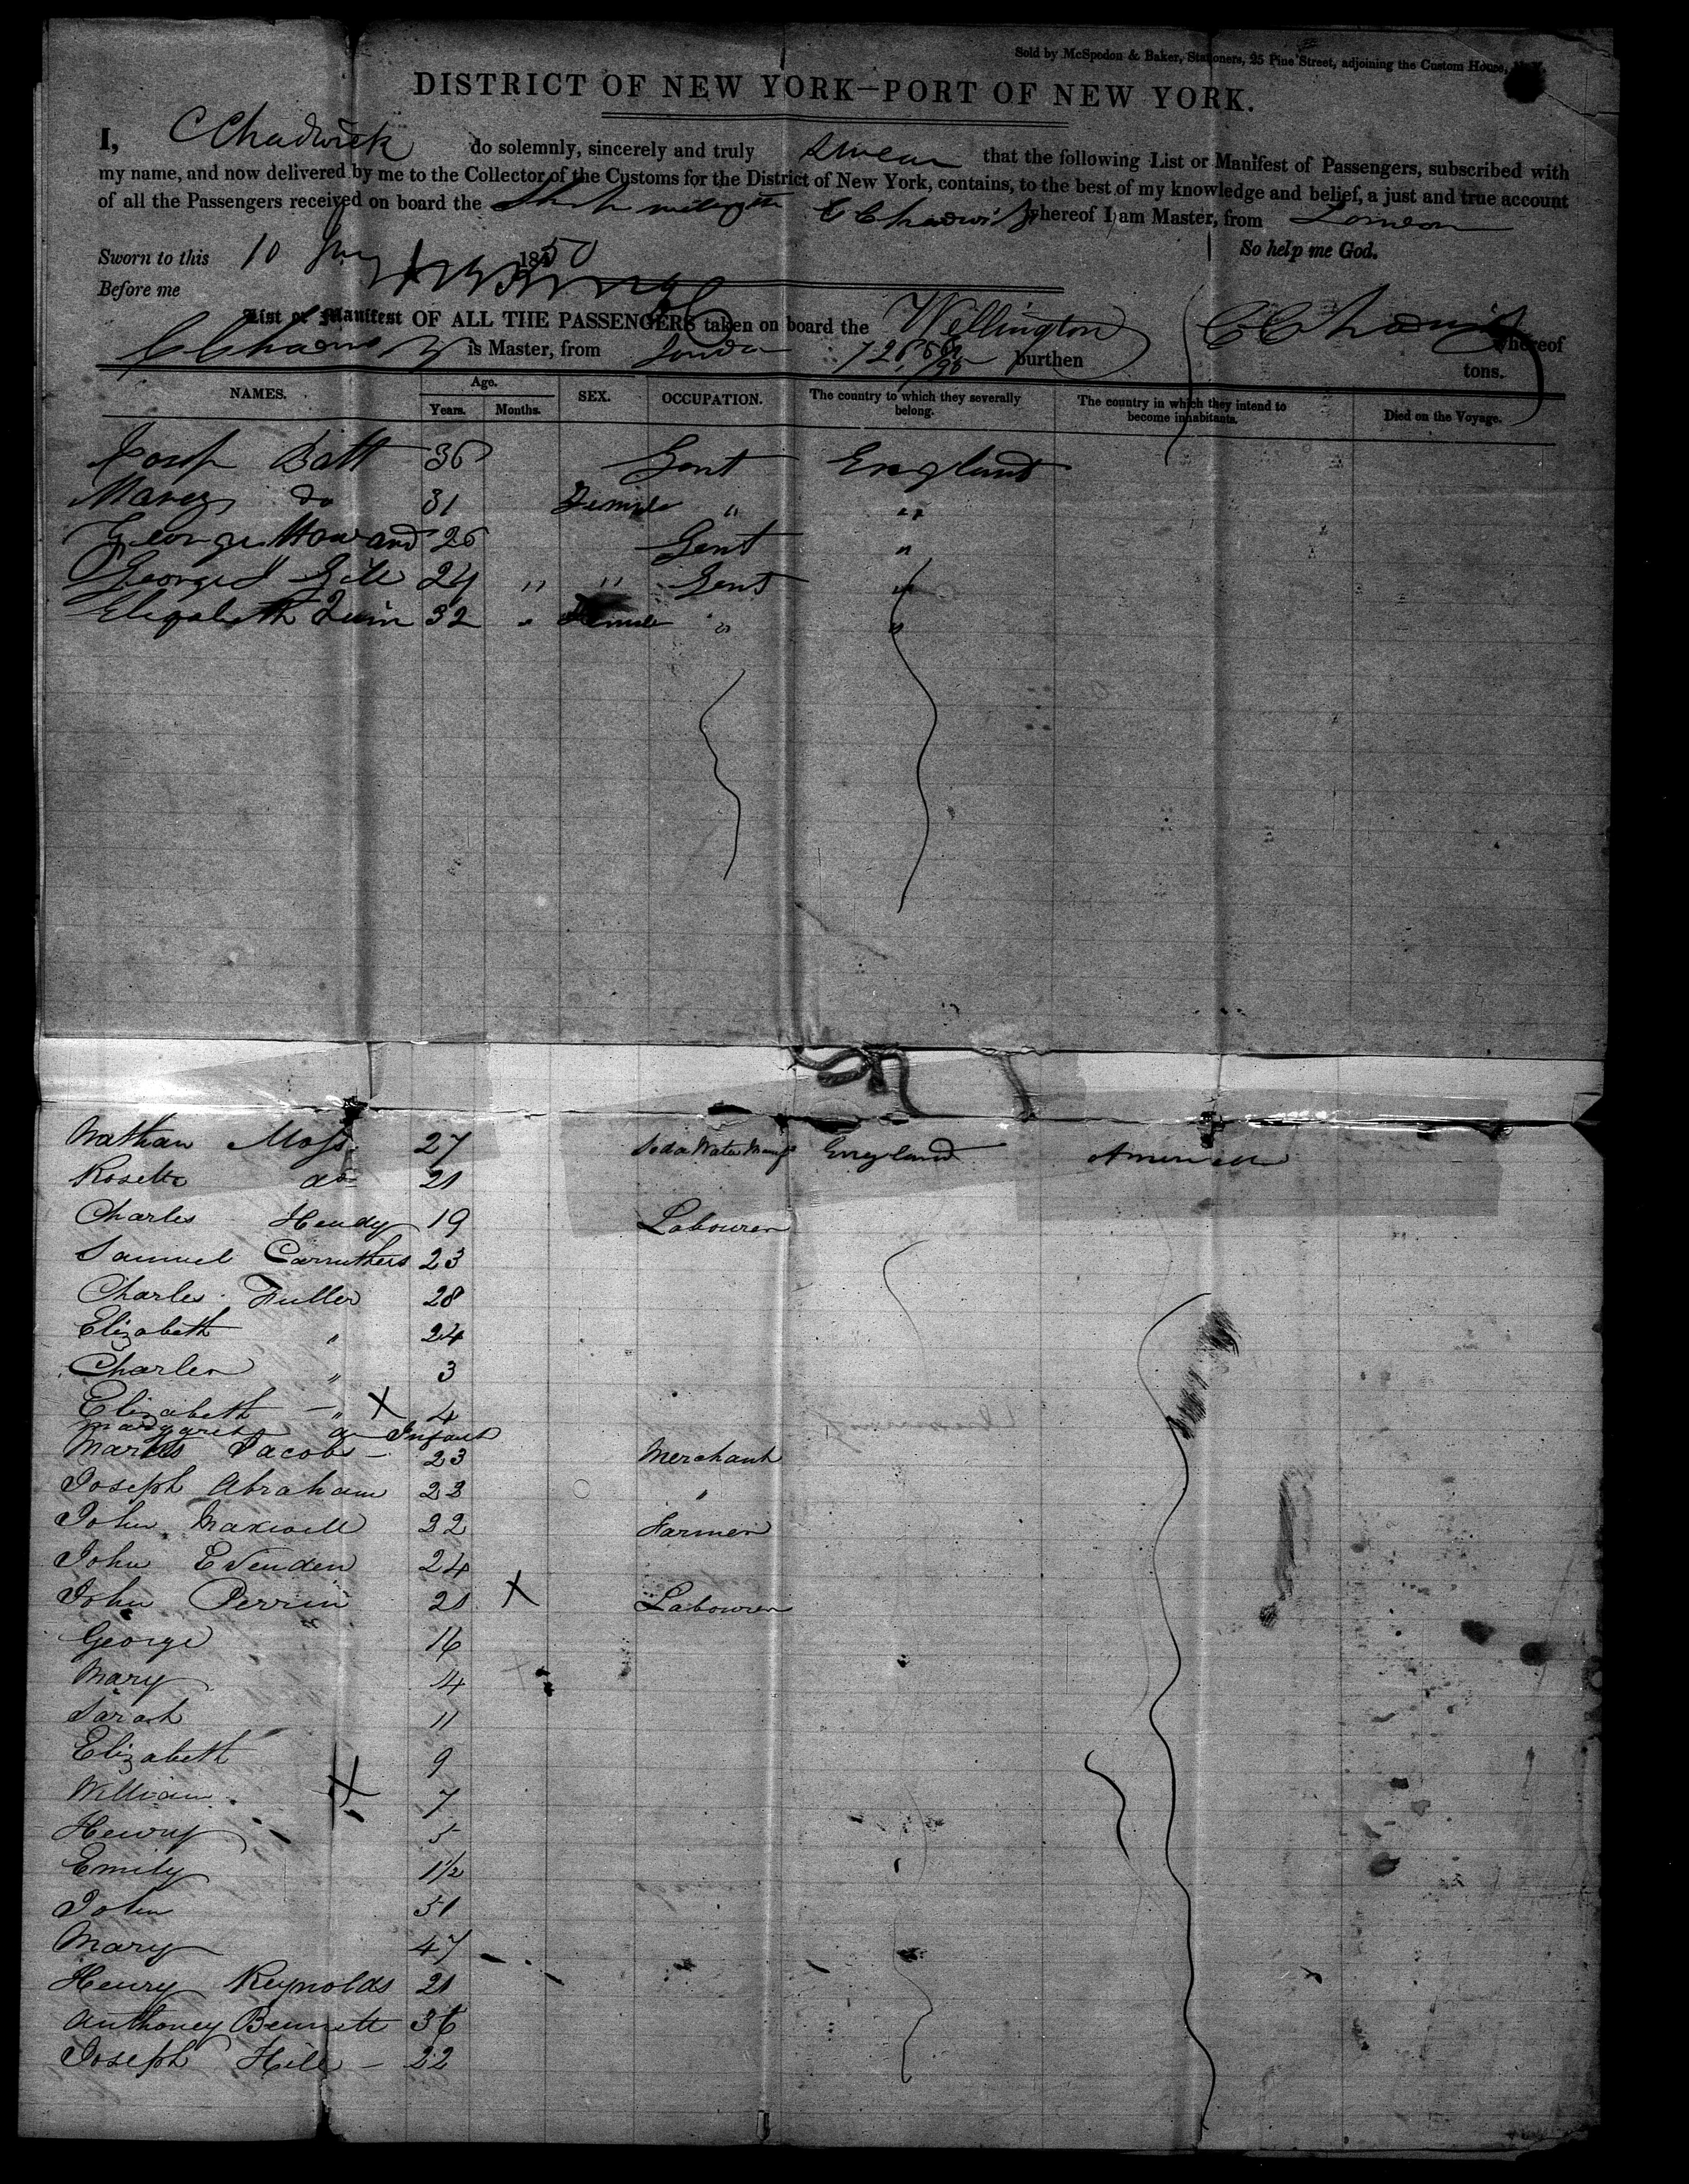 Sold by McSpedon & Baker, Stationers, 25 Pine Street, adjoining the Custom House, N.Y.
DISTRICT OF NEW YORK—PORT OF NEW YORK.
I, C Chadwick do solemnly, sincerely and truly swear that the following List or Manifest of Passengers, subscribed with
my name, and now delivered by me to the Collector of the Customs for the District of New York, contains, to the best of my knowledge and belief, a just and true account
of all the Passengers received on board the Ship Wellington C Chadwick whereof I am Master, from London
So help me God.
Sworn to this 10 1850
Before me
List or Manifest OF ALL THE PASSENGERS taken on board the Wellington C Chadwick whereof
C Chadwick is Master, from London 726 burthen tons.
NAMES. Age. SEX. OCCUPATION. The country to which they severally belong. The country in which they intend to become inhabitants. Died on the Voyage.
Years. Months.
Josep Batt 36 Gent England
do 31 Female " "
George Howard 26 Gent "
George Gill 24 " " Gent "
Elizabeth 32 " Female " "
Nathan Moss 27 Soda Water Manfr England America
Rosetta do 21
Charles Hendy 19 Labourer
Samuel Carruthers 23
Charles Fuller 28
Elizabeth " 24
Charles " 3
Elizabeth — " X 4
Margaret do Infant
Jacobs — 23 Merchant
Joseph Abraham 23 "
John Maxwell 32 Farmer
John Evenden 24
John Perrin 21 X Labourer
George 16
Mary 14
Sarah 11
Elizabeth 9
William X 7
Henry 5
Emily 1½
John 51
Mary 47
Henry Reynolds 21
Anthoney Bennett 36
Joseph Hill — 22